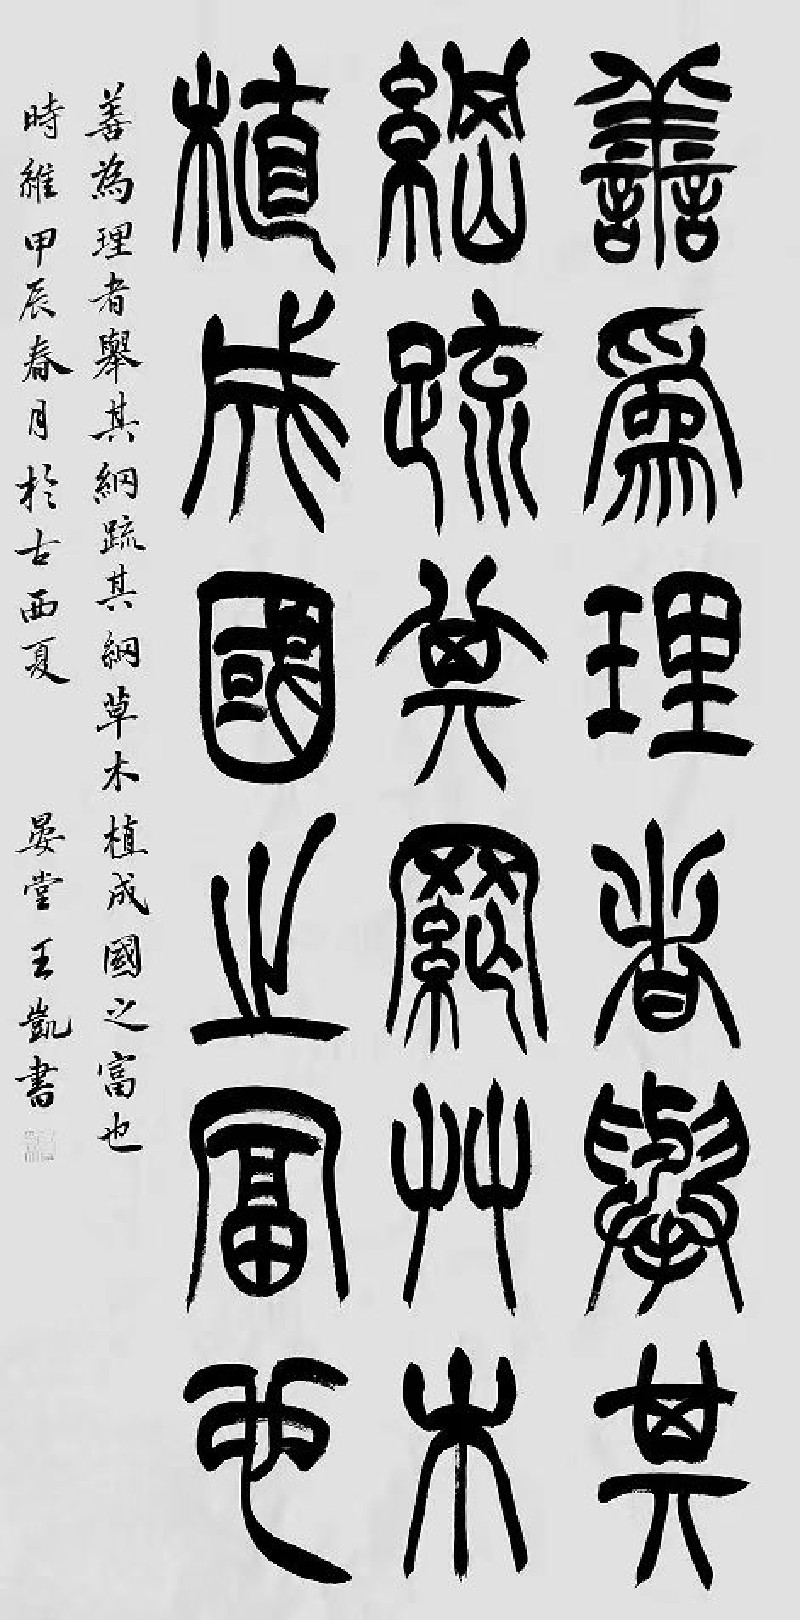 善爲理者舉其
綱疏其網艸木
植成國之富也
善為理者舉其綱疏其網草木植成國之富也
時維甲辰春月於古西夏 晏堂王凱書